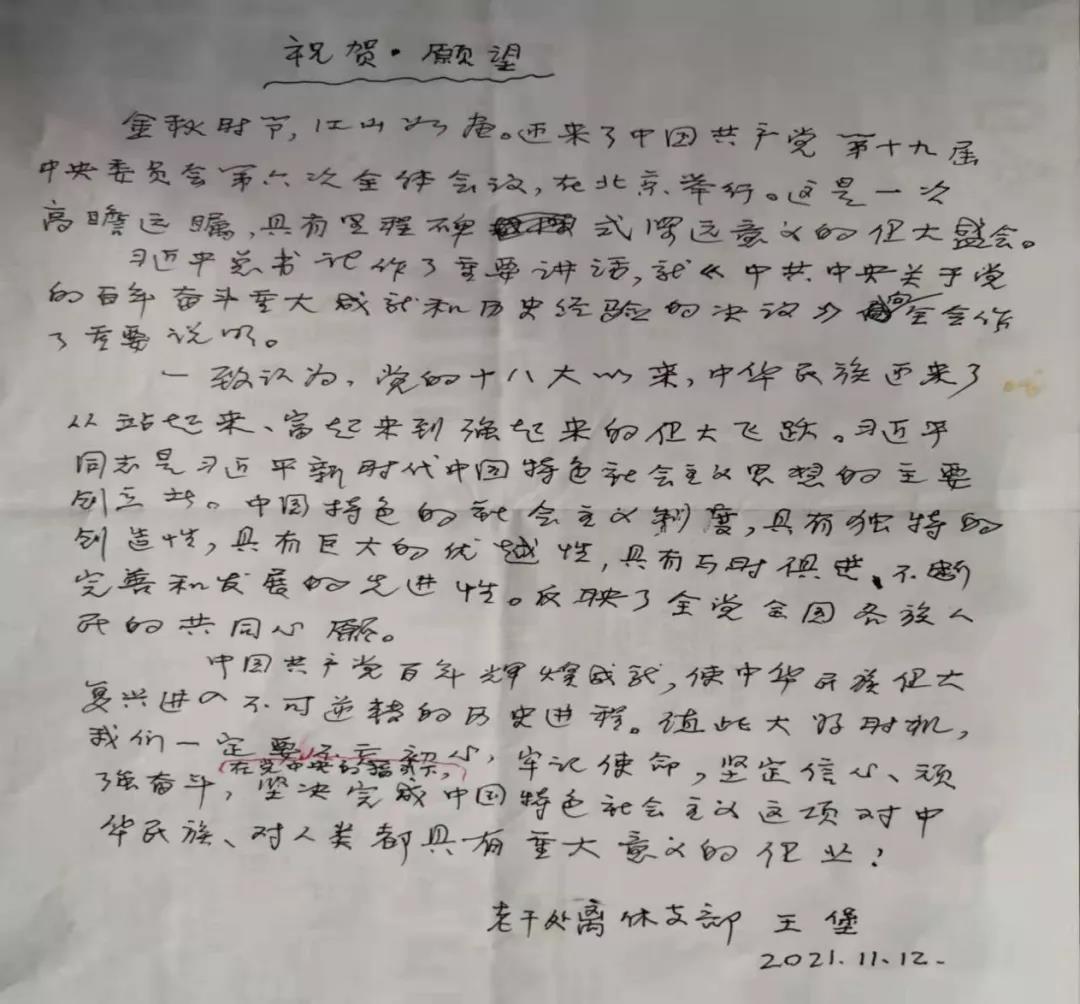 祝贺·愿望
金秋时节,江山如画。迎来了中国共产党第十九届
中央委员会第六次全体会议,在北京举行。这是一次
高瞻远瞩,具有里程碑式深远意义的伟大盛会。
习近平总书记作了重要讲话,就《中共中央关于党
的百年奋斗重大成就和历史经验的决议》向全会作
了重要说明。
一致认为,党的十八大以来,中华民族迎来了
从站起来、富起来到强起来的伟大飞跃。习近平
同志是习近平新时代中国特色社会主义思想的主要
创立者。中国特色的社会主义制度,具有独特的
创造性,具有巨大的优越性,具有与时俱进、不断
完善和发展的先进性。反映了全党全国各族人
民的共同心愿。
中国共产党百年辉煌成就,使中华民族伟大
复兴进入不可逆转的历史进程。值此大好时机,
我们一定要不忘初心,牢记使命,坚定信心、顽
(在党中央的指引下,)
强奋斗,坚决完成中国特色社会主义这项对中
华民族、对人类都具有重大意义的伟业!
老干处离休支部 王堡
2021.11.12.